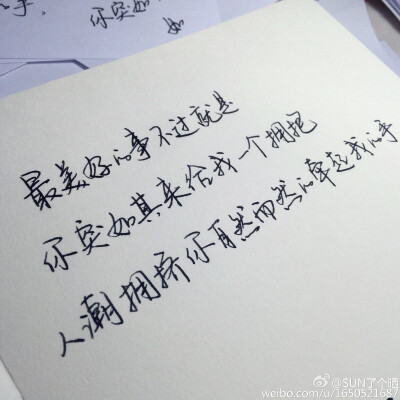 的手.
你突如
如
最美好的事不过就是
你突如其来给我一个拥抱
人潮拥挤你自然而然的牵起我的手
@SUN了个晒
weibo.com/u/1650521687